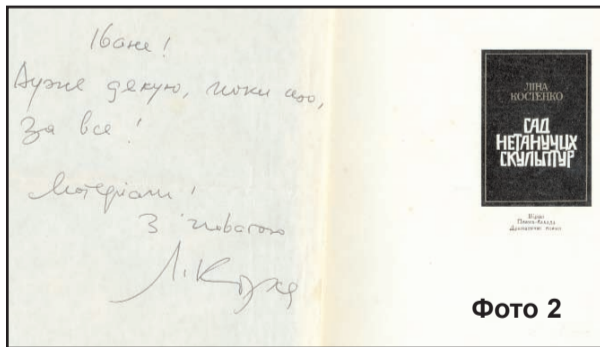 Іване!
Дуже дякую, поки що,
За все!
Матеріали!
З повагою
ЛІНА
КОСТЕНКО
САД
НЕТАНУЧИХ
СКУЛЬПТУР
Вірші
Поема-балада
Драматичні поеми
Фото 2